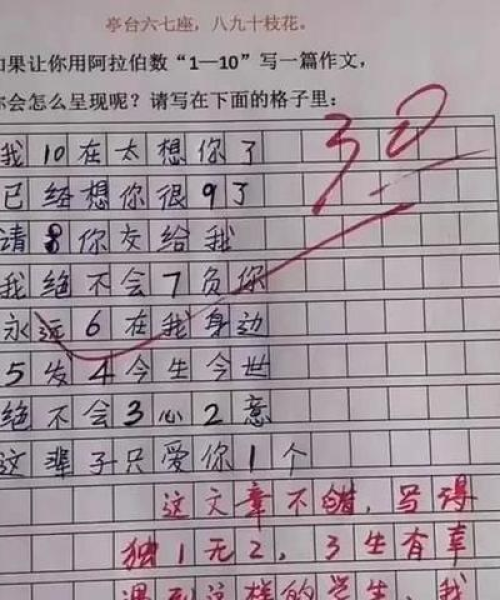 亭台六七座，八九十枝花。
如果让你用阿拉伯数“1—10”写一篇作文，
你会怎么呈现呢？请写在下面的格子里：
30
我10在太想你了
已经想你很9了
请8你交给我
我绝不会7负你
永远6在我身边
5发4今生今世
绝不会3心2意
这辈子只爱你1个
这文章不错，写得
独1无2，3生有幸
遇到这样的学生，我